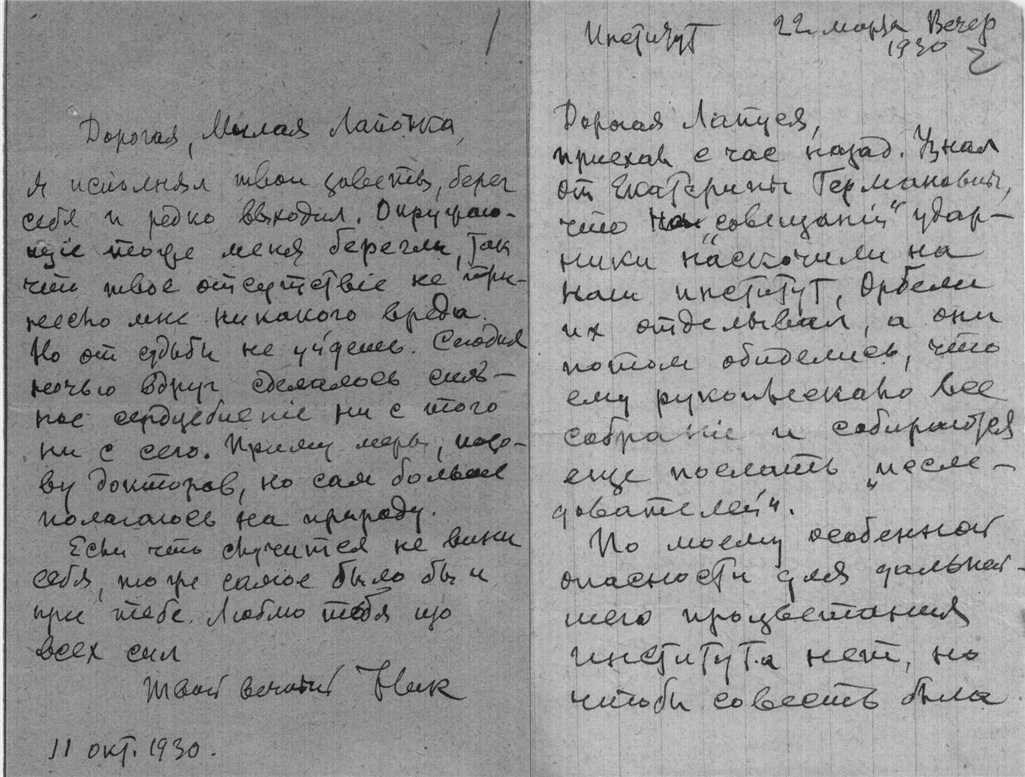 1
Дорогая, Милая Лапочка,
я исполнял твои заветы, берег
себя и редко выходил. Окружаю-
щiе тоже меня берегли, так
что твое отсутствiе не при-
несло мне никакого вреда.
Но от судьбы не уйдешь. Сегодня
ночью вдруг сделалось силь-
ное сердцебиенiе ни с того
ни с сего. Приму меры, позо-
ву докторов, но сам больше
полагаюсь на природу.
Если что случится не вини
себя, то же самое было бы и
при тебе. Люблю тебя изо
всех сил
Твой вечный Ник
11 окт. 1930.
Институт 22 марта Вечер
1930
2
Дорогая Лапуся,
приехав с час назад. Узнал
от Екатерины Германовны,
что на „совещанiи“ удар-
ники наскочили на
наш институт, Орбели
их отделывал, а они
потом обиделись, что
ему рукоплескало все
собранiе и собираются
еще послать „иссле-
дователей“.
По моему особенной
опасности для дальней-
шего процветания
института нет, но
чтобы совесть была